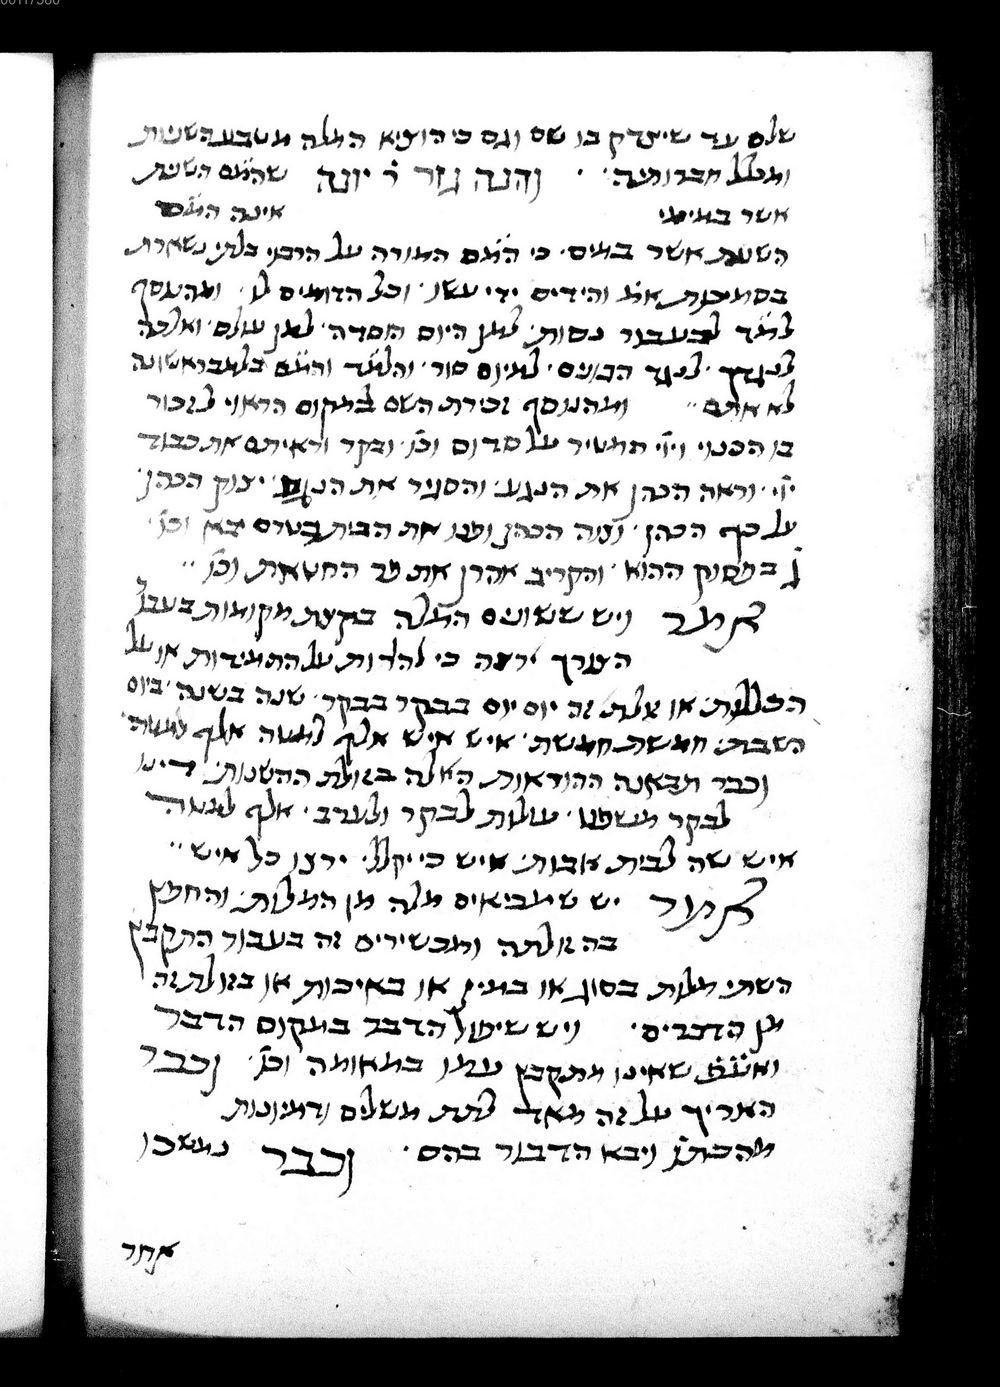 שלם עד שיצדק בו שם וגם כי הוציא המלה משבע השניות
ומכלל חברותיה והנה גזר ר' יונה שהמ"ם השנית
אשר במימי אינה המ"ם
השנית אשר במים כי המ"ם המורה על הרבוי בלתי נשארת
בסמיכות את והידים ידי עשו וכל הדומים לו ומהנוסף
למ"ד לבעבור נסות למן היום הוסדה למן עולם ואלכה
לנגדך לנגד הבונים למיום סור והלמ"ד והמ"ם בלמבראשונה
לא אתם ומהנוסף זכירת השם במקום הראוי לזכור
בו הכנוי וי"י המטיר על סדום וכו' ובקר וראיתם את כבוד
י"י וראה הכהן את הנגע והסגיר את הנגע יצוק הכהן
על כף הכהן וצוה הכהן ופנו את הבית בטרם יבא וכו'
ג' בפסוק ההוא והקריב אהרן את פר החטאת וכו'
אמר ויש ששונים המלה בקצת מקומות בעבור
הצורך יראה כי להורות על התמידות או על
הכללות או זולת זה יום יום בבקר בבקר שנה בשנה ביום
השבת חמשת חמשת איש איש אלף למטה אלף למטה
וכבר תבאנה ההוראות האלה בזולת ההשנות דינו
לבקר משפט עולות לבקר ולערב אלף למטה
איש שה לבית אבות איש כי יקלל ירצו כל איש
אמר יש שמביאים מלה מן המלות והחפץ
בה זולתה ומכשירים זה בעבור התקבץ
השתי מלות בסוג או במין או באיכות או בזולת זה
מן הדברים ויש שיטול הדבר במקום הדבר
ואע"פ שאינו מתקבץ עמו במאומה וכו' וכבר
האריך על זה מאד לתת משלים ודמיונות
מהכתו' ויבא הדבור בהם וכבר נמשכו
אחר